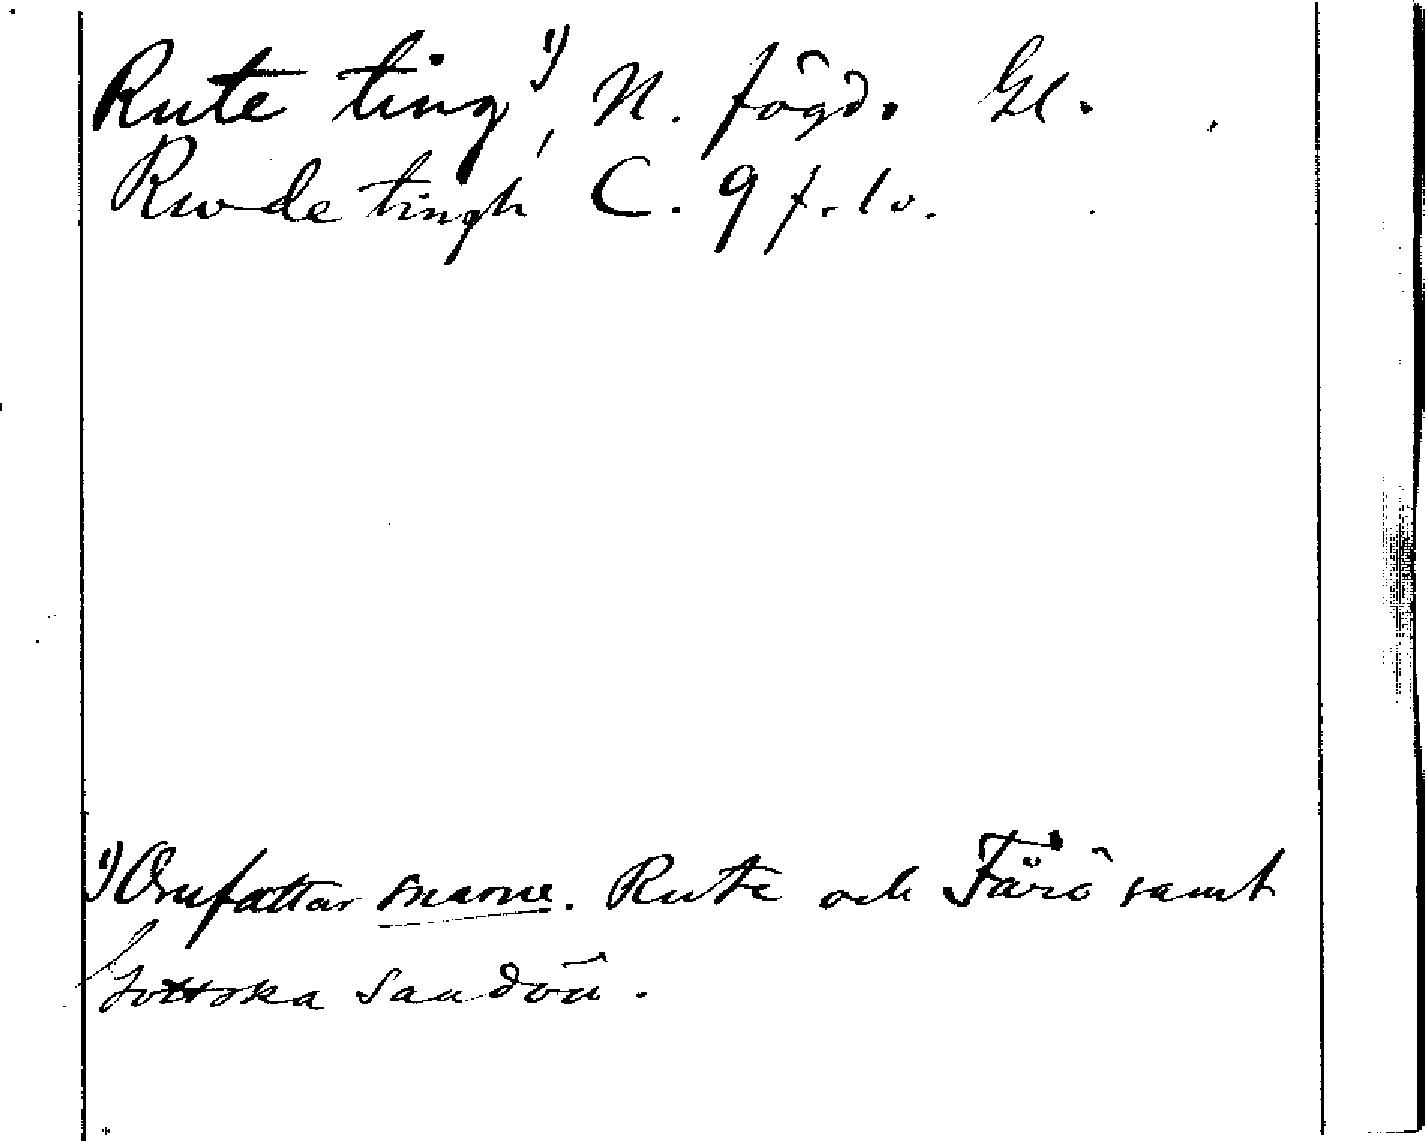 Rute ting¹⁾, N. fögd. Gl.
Rwde tingh C. 9 f. 1 v.
¹⁾ Omfattar snarne. Rute och Fårö samt
Gottska Sandön.